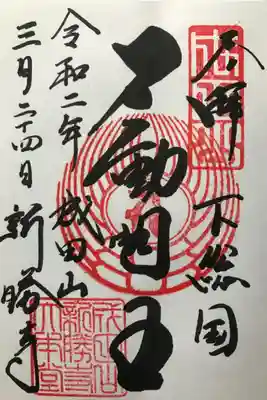 奉拝 下総国
不動明王
成田山 新勝寺
令和二年
三月二十四日
成田山
新勝寺
大本堂